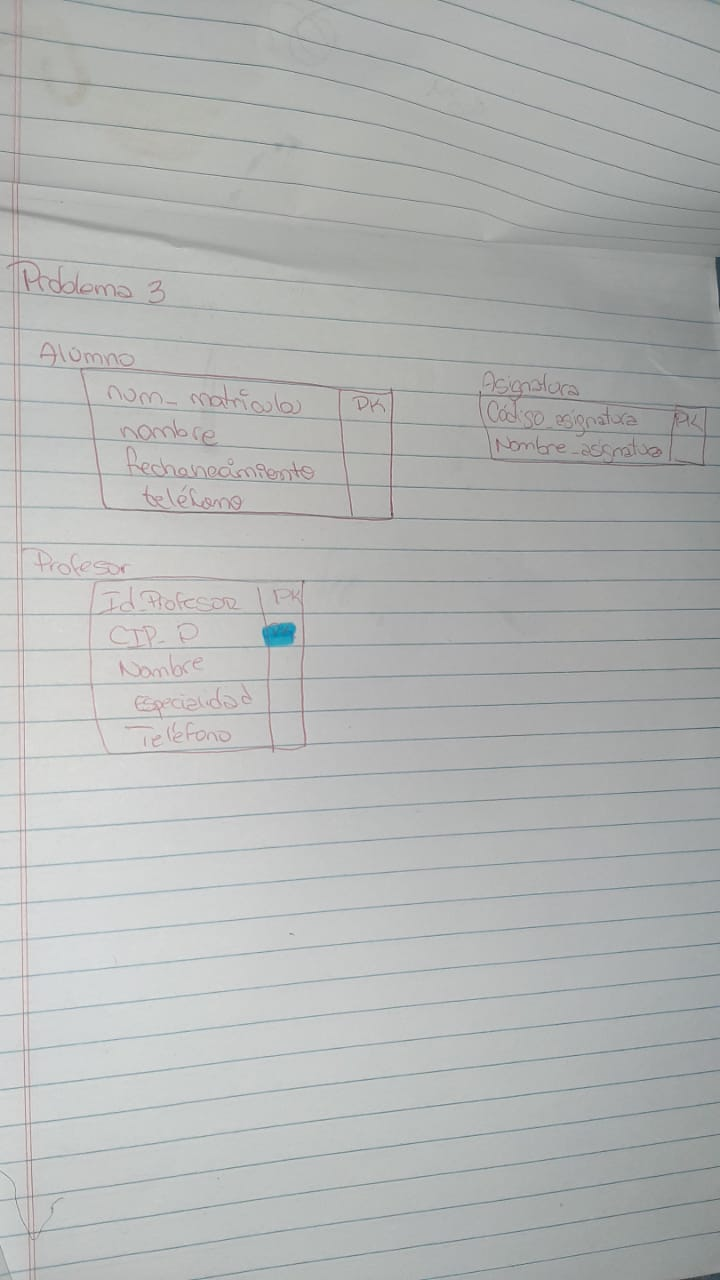 Problema 3
Alumno
num_matrícula PK
nombre
fechanacimiento
teléfono
Asignatura
Código_asignatura PK
Nombre_asignatura
Profesor
Id_Profesor PK
CIP_P
Nombre
Especialidad
Teléfono